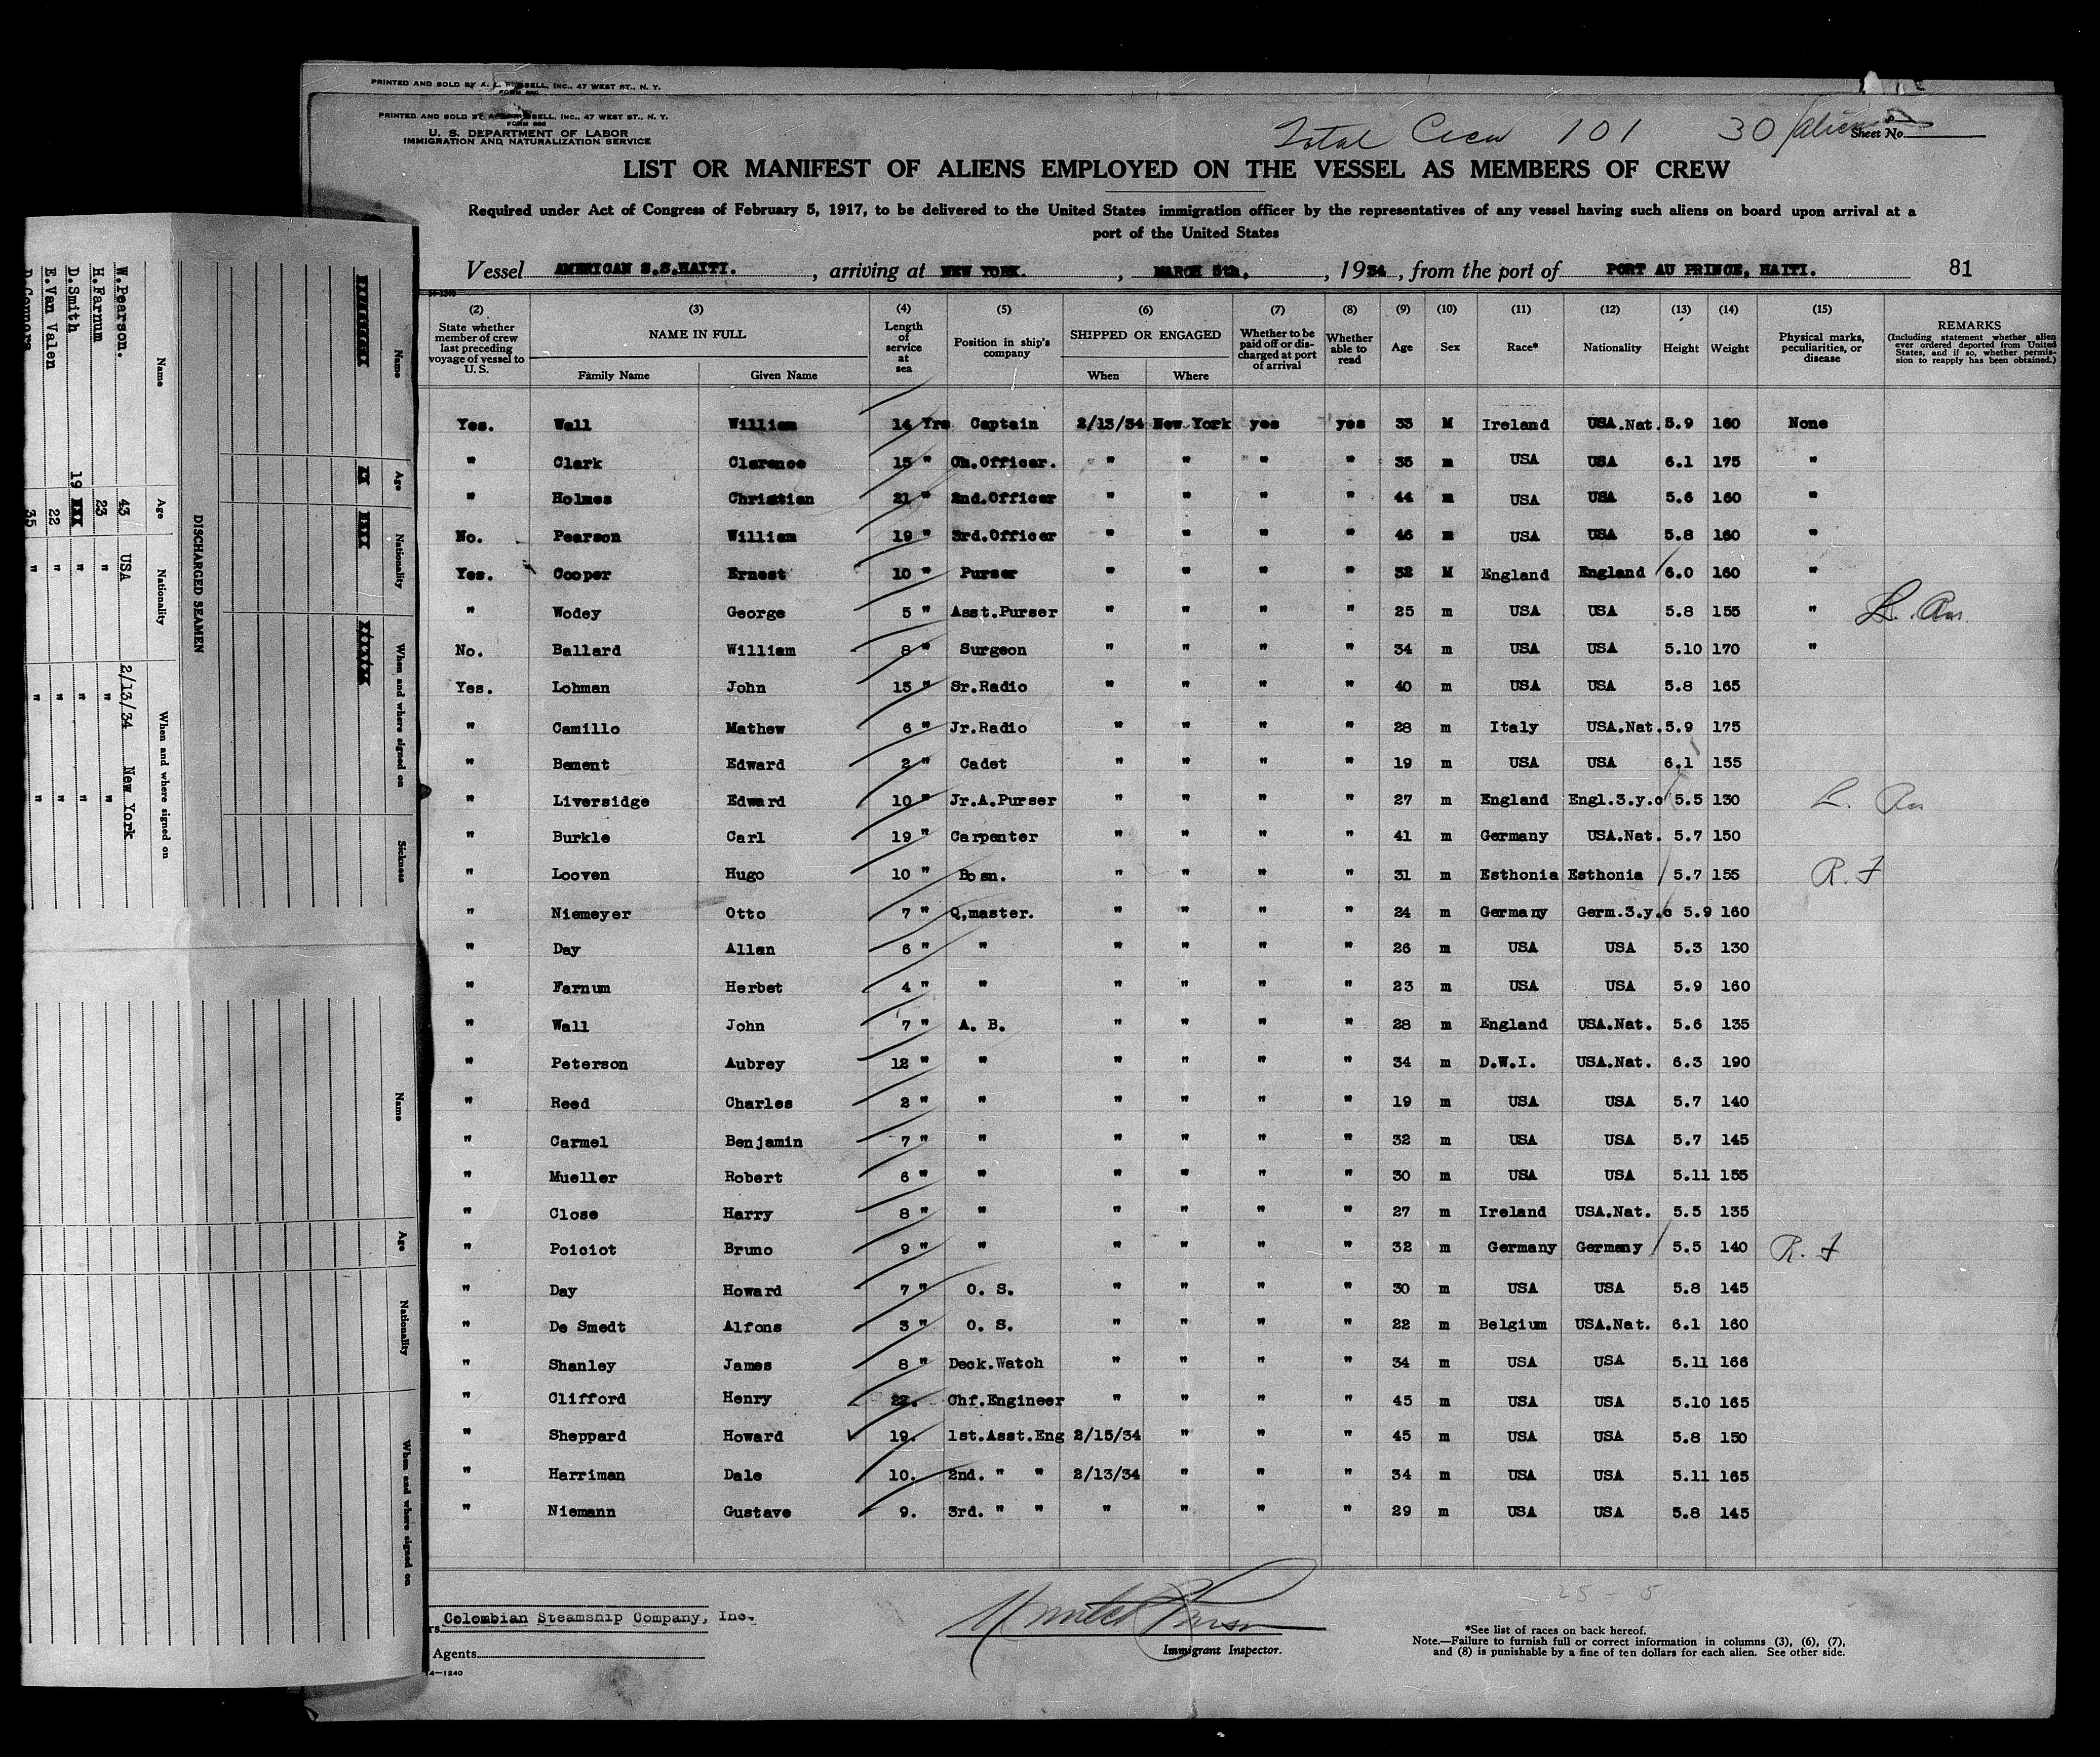 PRINTED AND SOLD BY A. L. RUSSELL, INC., 47 WEST ST., N. Y.
FORM 680
PRINTED AND SOLD BY A. L. RUSSELL, INC., 47 WEST ST., N. Y.
FORM 680
U. S. DEPARTMENT OF LABOR
IMMIGRATION AND NATURALIZATION SERVICE
Total Crew 101 30 aliens
Sheet No.
LIST OR MANIFEST OF ALIENS EMPLOYED ON THE VESSEL AS MEMBERS OF CREW
Required under Act of Congress of February 5, 1917, to be delivered to the United States immigration officer by the representatives of any vessel having such aliens on board upon arrival at a
port of the United States
Vessel AMERICAN S.S.HAITI. , arriving at NEW YORK. , MARCH 5th. , 1934 , from the port of PORT AU PRINCE, HAITI. 81
14-1240
(2) (3) (4) (5) (6) (7) (8) (9) (10) (11) (12) (13) (14) (15)
State whether member of crew last preceding voyage of vessel to U. S. NAME IN FULL Length of service at sea Position in ship's company SHIPPED OR ENGAGED Whether to be paid off or discharged at port of arrival Whether able to read Age Sex Race* Nationality Height Weight Physical marks, peculiarities, or disease REMARKS (Including statement whether alien ever ordered deported from United States, and if so, whether permission to reapply has been obtained.)
Family Name Given Name When Where
Yes. Wall William 14 Yrs Captain 2/13/34 New York yes yes 33 M Ireland USA.Nat. 5.9 160 None
" Clark Clarence 15 " Ch.Officer. " " " " 35 m USA USA 6.1 175 "
" Holmes Christian 21 " 2nd.Officer " " " " 44 m USA USA 5.6 160 "
No. Pearson William 19 " 3rd.Officer " " " " 46 m USA USA 5.8 160 "
Yes. Cooper Ernest 10 " Purser " " " " 32 M England England 6.0 160 "
" Wodey George 5 " Asst.Purser " " " " 25 m USA USA 5.8 155 "
No. Ballard William 8 " Surgeon " " " " 34 m USA USA 5.10 170 "
Yes. Lohman John 15 " Sr.Radio " " " " 40 m USA USA 5.8 165
" Camillo Mathew 6 " Jr.Radio " " " " 28 m Italy USA.Nat. 5.9 175
" Bement Edward 2 " Cadet " " " " 19 m USA USA 6.1 155
" Liversidge Edward 10 " Jr.A.Purser " " " " 27 m England Engl.3.y.o 5.5 130
" Burkle Carl 19 " Carpenter " " " " 41 m Germany USA.Nat. 5.7 150
" Looven Hugo 10 " Bosn. " " " " 31 m Esthonia Esthonia 5.7 155 R. F
" Niemeyer Otto 7 " Q,master. " " " " 24 m Germany Germ.3.y.o 5.9 160
" Day Allan 6 " " " " " " 26 m USA USA 5.3 130
" Farnum Herbet 4 " " " " " " 23 m USA USA 5.9 160
" Wall John 7 " A. B. " " " " 28 m England USA.Nat. 5.6 135
" Peterson Aubrey 12 " " " " " " 34 m D.W.I. USA.Nat. 6.3 190
" Reed Charles 2 " " " " " " 19 m USA USA 5.7 140
" Carmel Benjamin 7 " " " " " " 32 m USA USA 5.7 145
" Mueller Robert 6 " " " " " " 30 m USA USA 5.11 155
" Close Harry 8 " " " " " " 27 m Ireland USA.Nat. 5.5 135
" Poiciot Bruno 9 " " " " " " 32 m Germany Germany 5.5 140 R. F
" Day Howard 7 " O. S. " " " " 30 m USA USA 5.8 145
" De Smedt Alfons 3 " O. S. " " " " 22 m Belgium USA.Nat. 6.1 160
" Shanley James 8 " Deck.Watch " " " " 34 m USA USA 5.11 166
" Clifford Henry 22. Chf.Engineer " " " " 45 m USA USA 5.10 165
" Sheppard Howard 19. 1st.Asst.Eng 2/15/34 " " " 45 m USA USA 5.8 150
" Harriman Dale 10. 2nd. " " 2/13/34 " " " 34 m USA USA 5.11 165
" Niemann Gustave 9. 3rd. " " " " " " 29 m USA USA 5.8 145
25 - 5
Colombian Steamship Company, Inc.
Agents
14-1240
Immigrant Inspector.
*See list of races on back hereof.
Note.—Failure to furnish full or correct information in columns (3), (6), (7),
and (8) is punishable by a fine of ten dollars for each alien. See other side.
DISCHARGED SEAMEN
Name Age Nationality When and where signed on Sickness
Name Age Nationality When and where signed on
Name Age Nationality When and where signed on
W.Pearson. 43 USA 2/13/34 New York
H.Farnum 23 " " "
D.Smith 19 XXX " " "
E.Van Valen 22 " " "
D.Connors 35 " " "